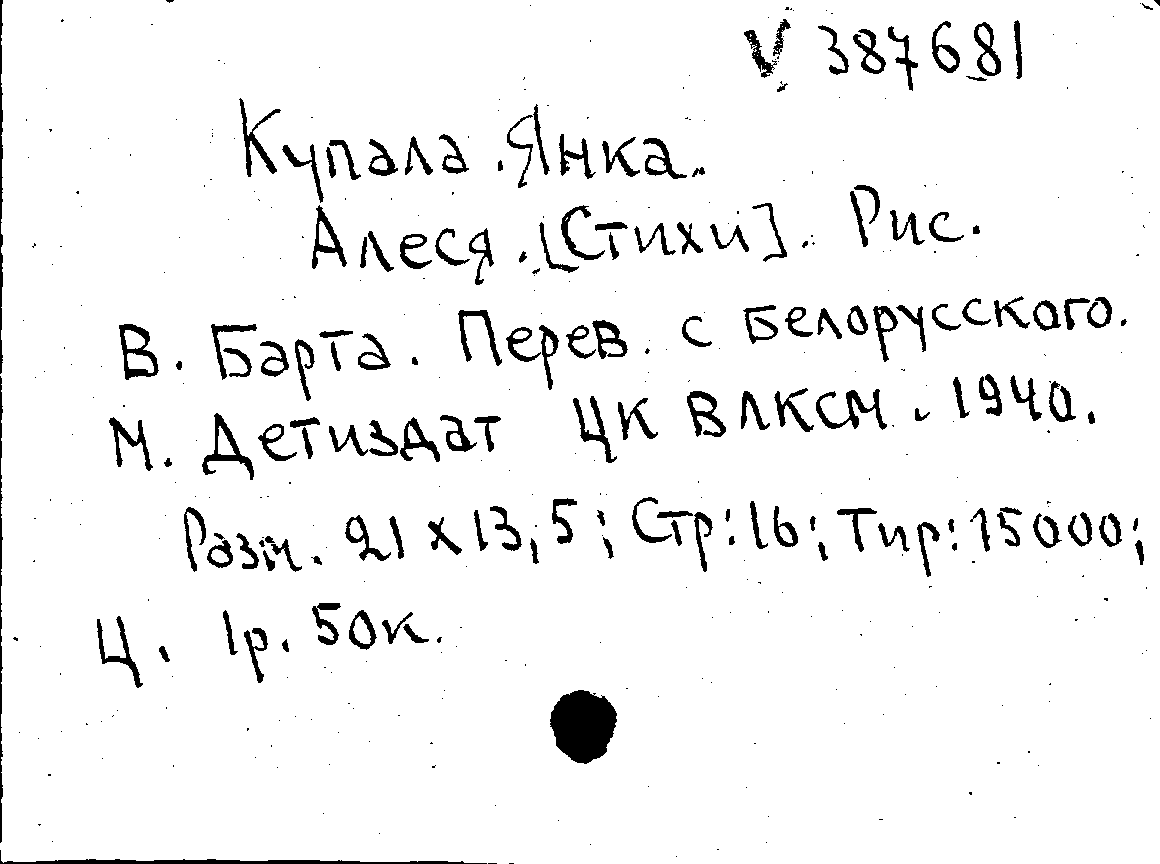 V 387681
Купала. Янка.
Алеся. [Стихи]. Рис.
В. Барта. Перев. с белорусского.
М. Детиздат ЦК ВЛКСМ. 1940.
Разм. 21 х 13,5; Стр: 16; Тир: 15000;
Ц. 1р. 50к.